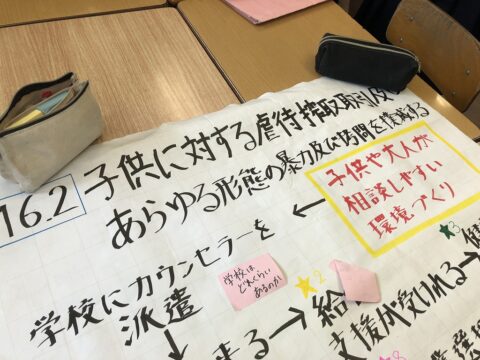 16.2
子供に対する虐待搾取取引及び
あらゆる形態の暴力及び拷問を撲滅する
子供や大人が
相談しやすい
環境づくり
←
学校にカウンセラーを
派遣
↓
学校は
どれくらい
あるのか
★2
★3
→ 給
支援が受けれる→